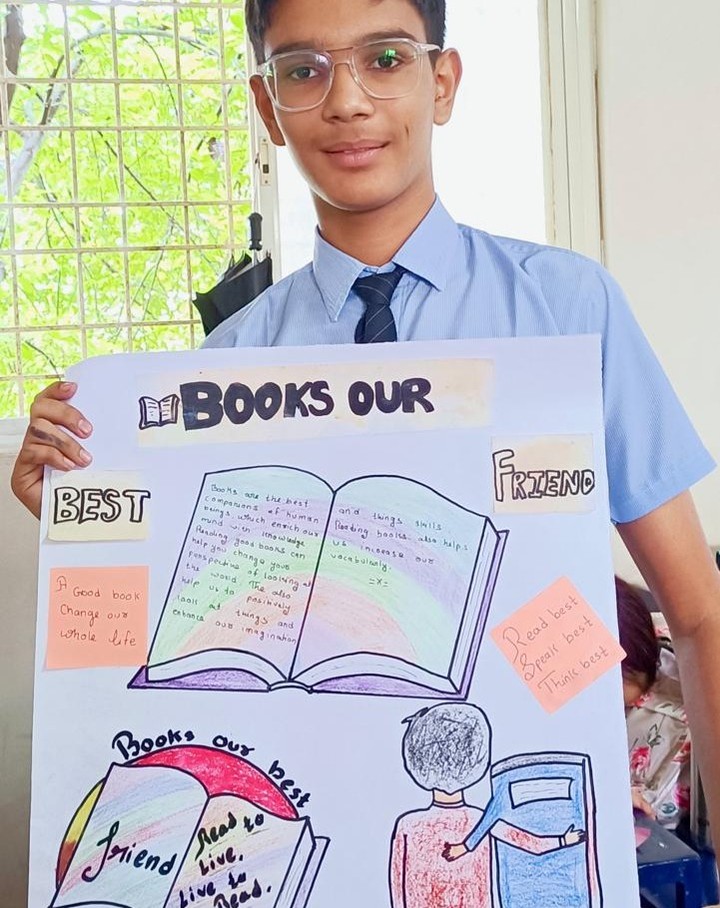 BOOKS OUR
BEST
FRIEND
Books are the best
companions of human
beings which enrich our
mind with knowledge
Reading good books can
help you change your
perspective of looking at
the world. The also
help us to positively
look at things and
enhance our imagination
and things skills
Reading books also helps
us increase our
vocabulary.
=x=
A Good book
Change our
whole life
Read best
Speak best
Think best
Books our best
friend
Read to
Live,
Live to
Read.